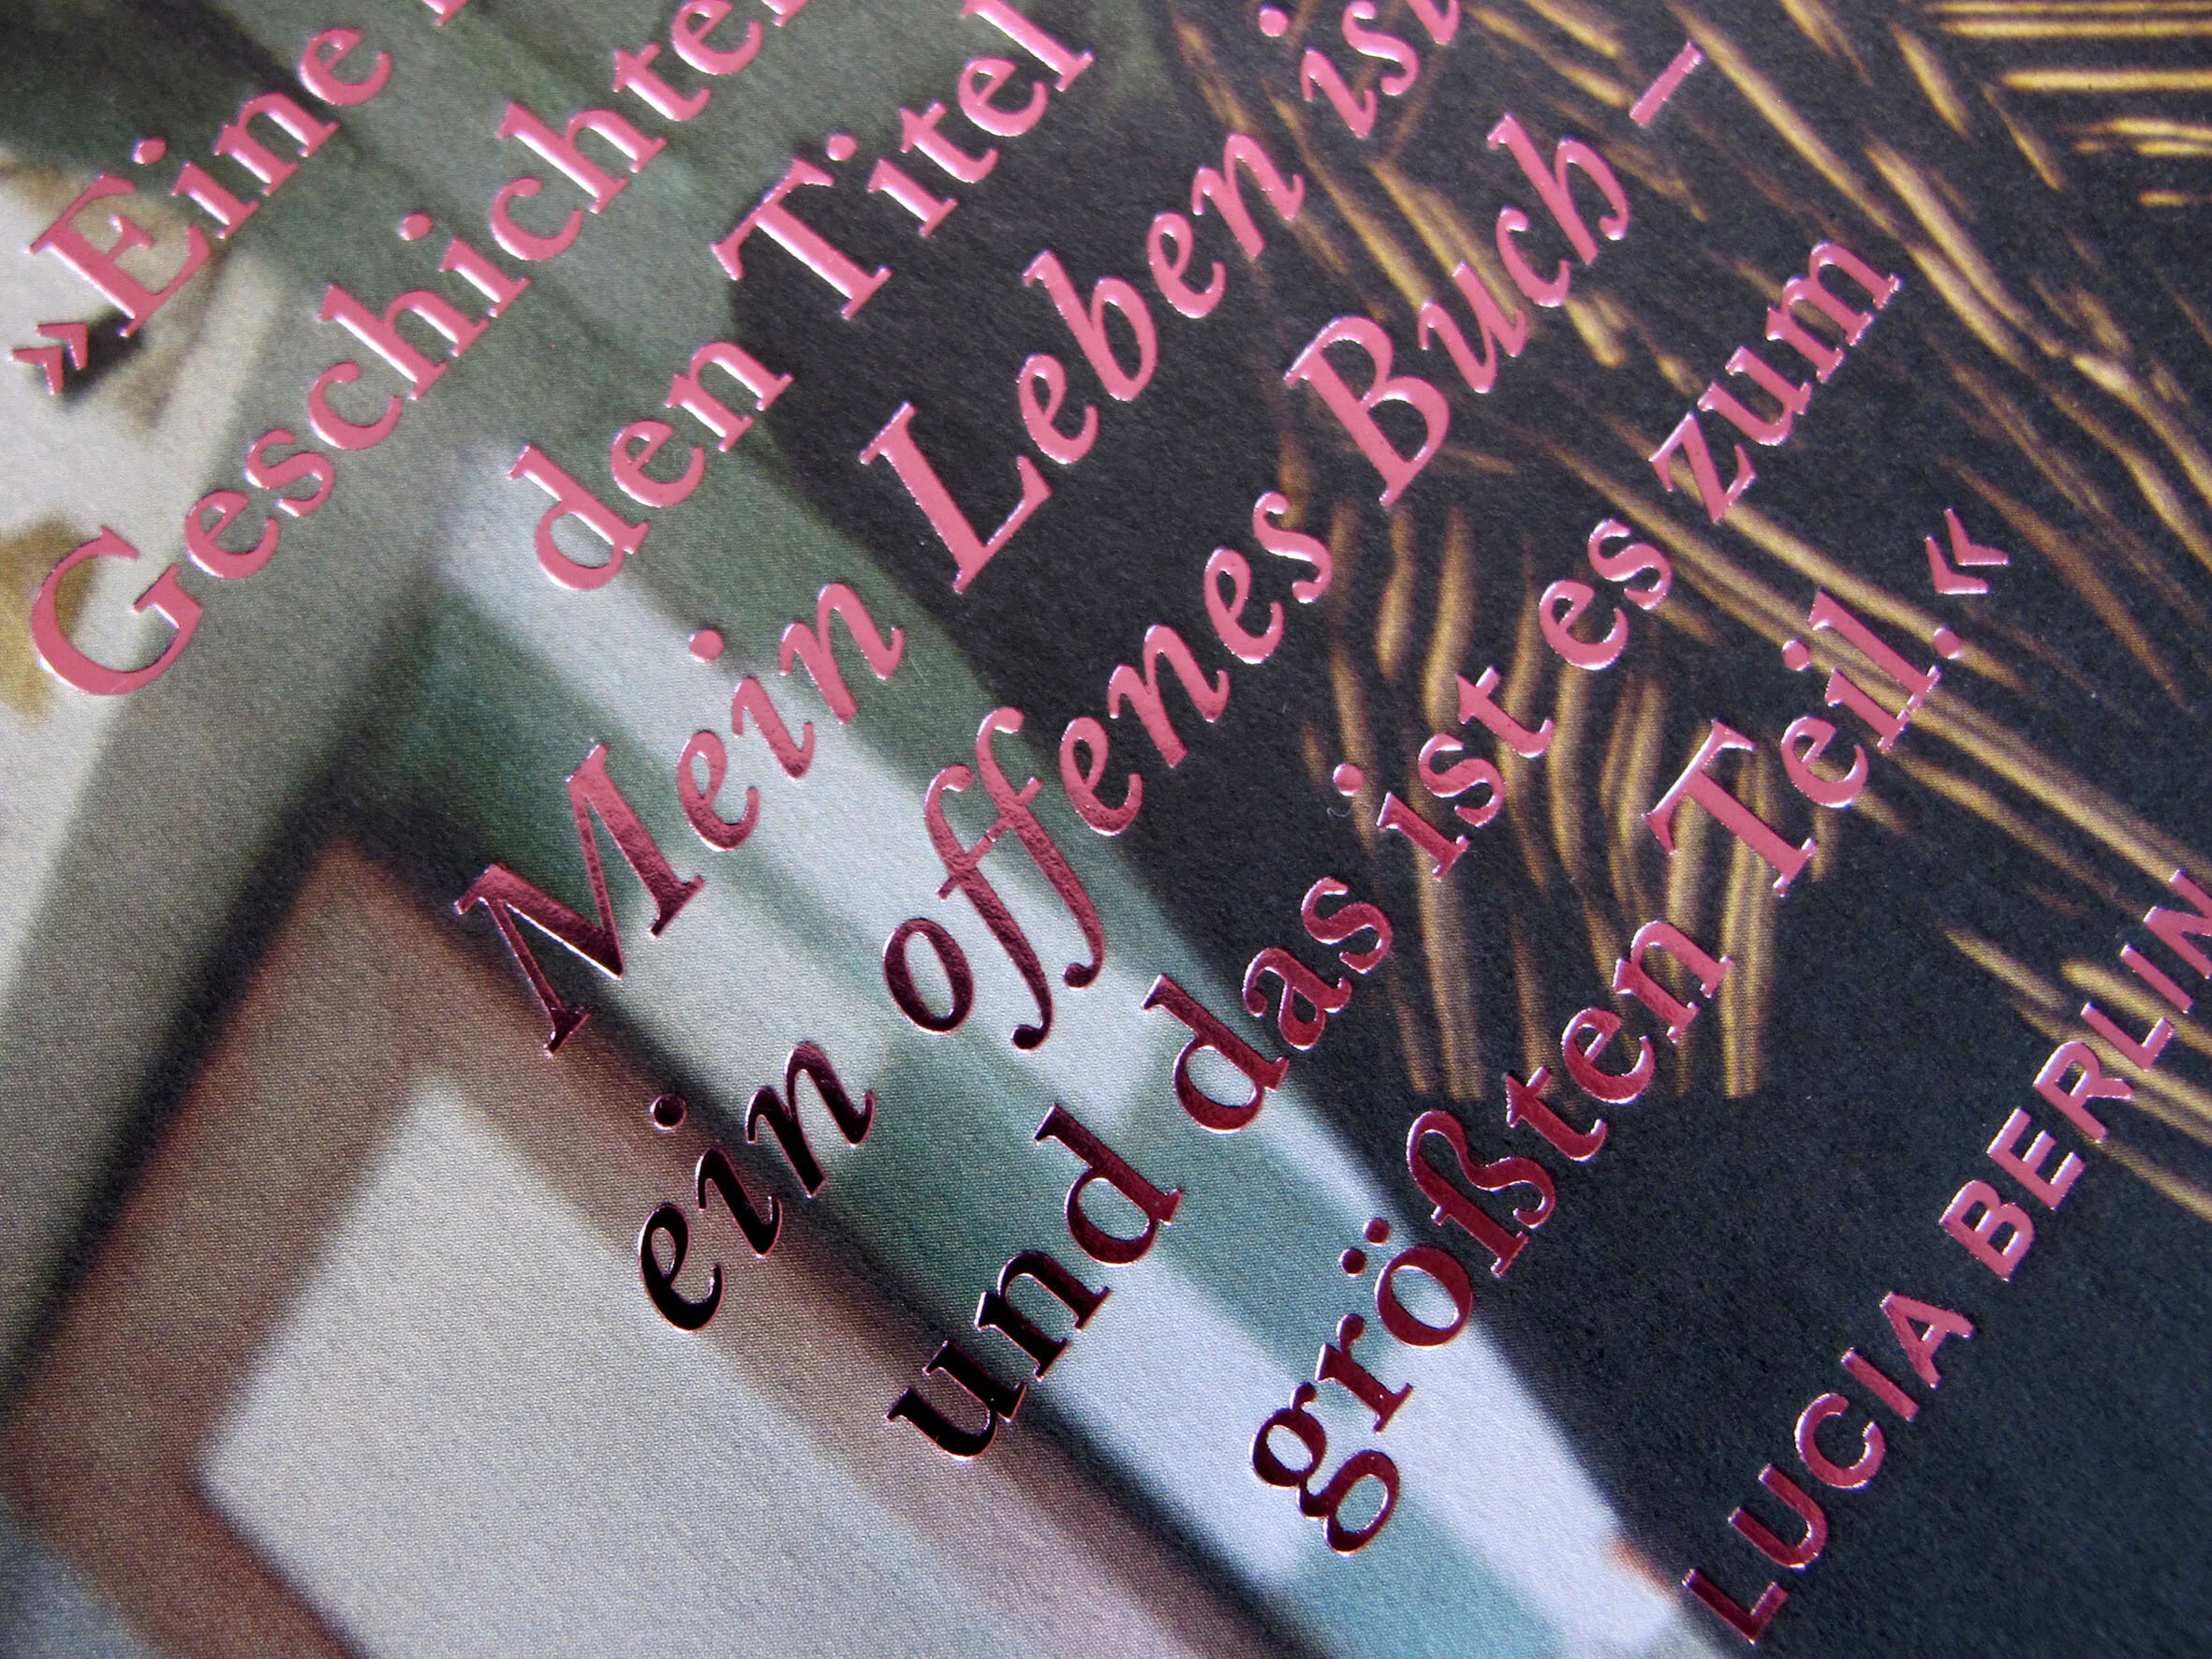 »Eine
Geschichten
den Titel
Mein Leben ist
ein offenes Buch –
und das ist es zum
größten Teil.«
LUCIA BERLIN